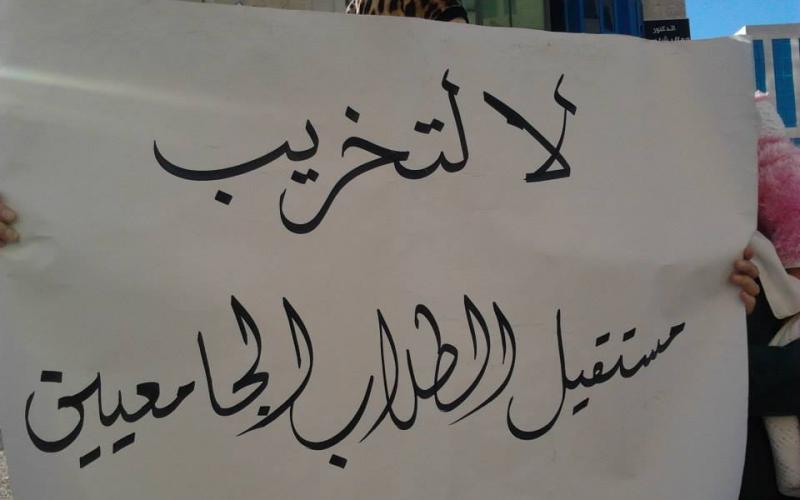 الدكتور
لا لتخريب
مستقبل الطلاب الجامعيين